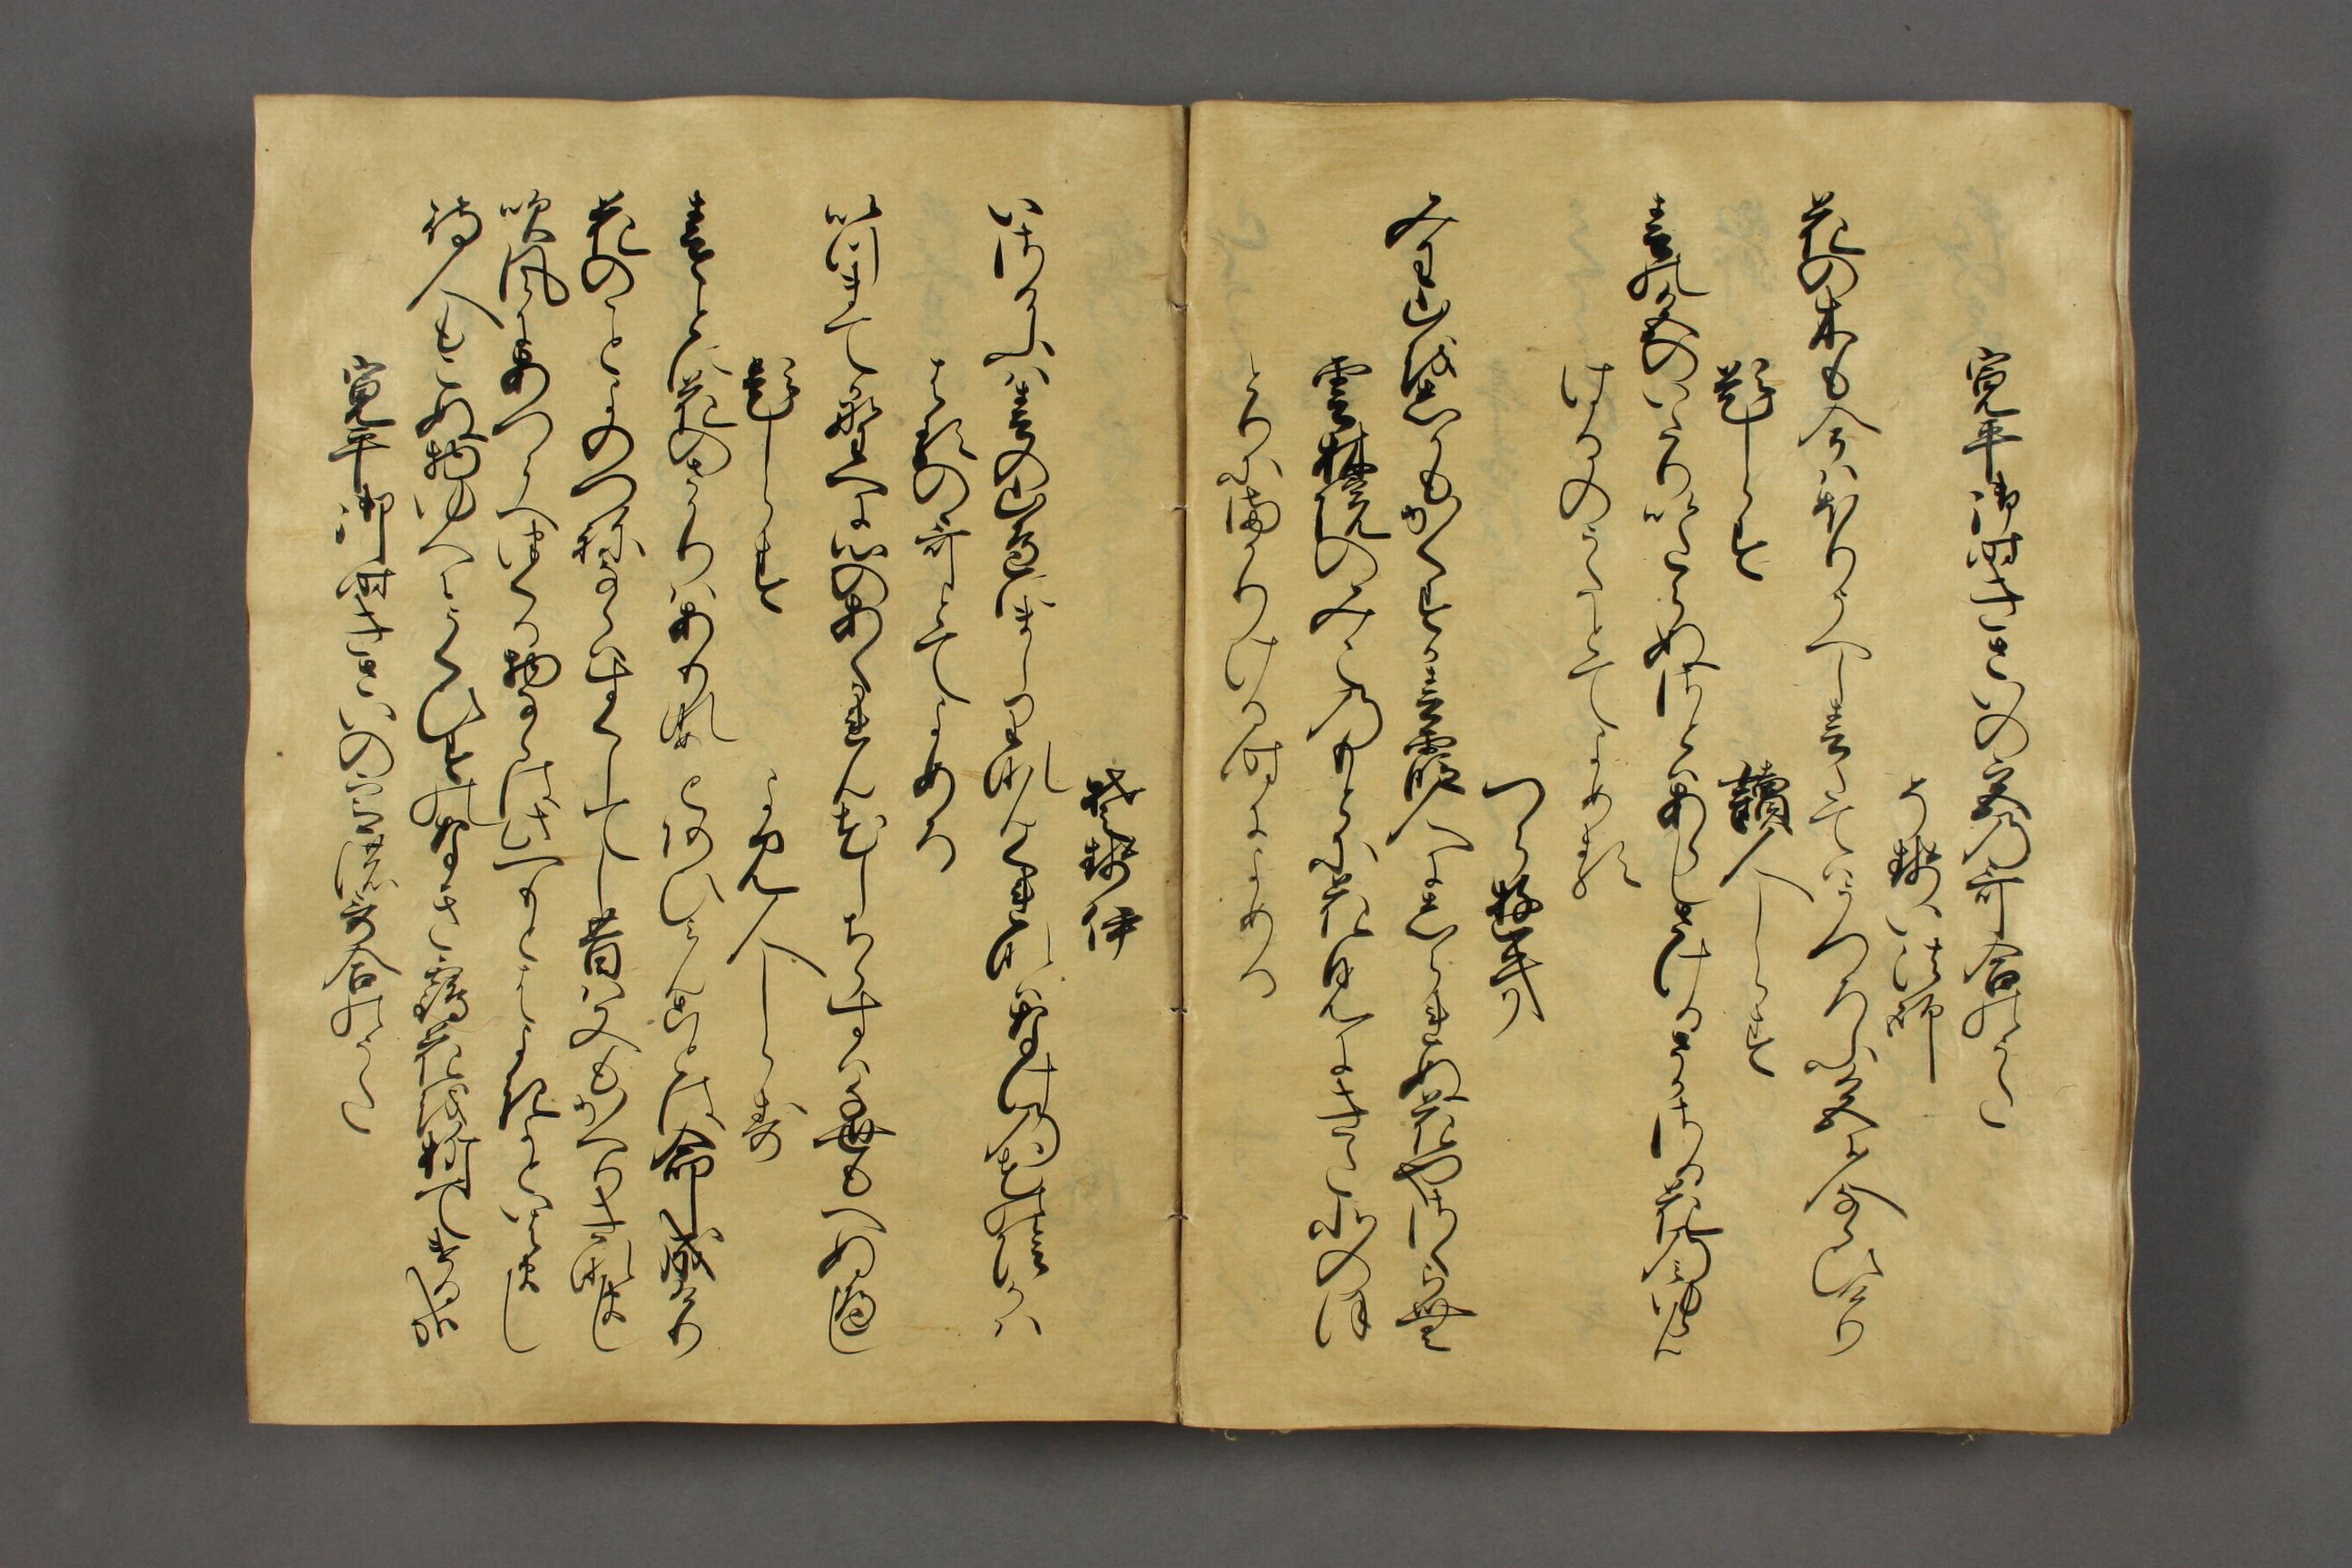 寛平御時きさいの宮乃哥合のうた
そせい法師
花の木も今はほりうへし春たてはうつろふ色に人ならひけり
題しらす
讀人しらす
春の色のいたりいたらぬさとはあらしさけるさかさる花の見ゆらん
はるのうたとてよめる
つらゆき
みわ山をしかもかくすか春霞人にしられぬ花やさくらむ
雲林院のみこのもとに花見にきた山のほ
とりにまかりける時によめる
そせい
いさけふは春の山邊にましりなんくれなはなけの花のかけかは
はるの哥とてよめる
いつまて か野へに心のあくかれん花しちらすは千世もへぬへし
題しらす
よみ人しらす
春ことに花のさかりはありなめとあひみん事は命成けり
花のことよのつねならはすくしてし昔は又もかへりきなまし
吹風にあつらへつくる物ならはこの一もとはよきよといはまし
待人もこぬ物ゆへにうくひすのなきつる花を折てける哉
寛平御時きさいの宮の哥合のうた